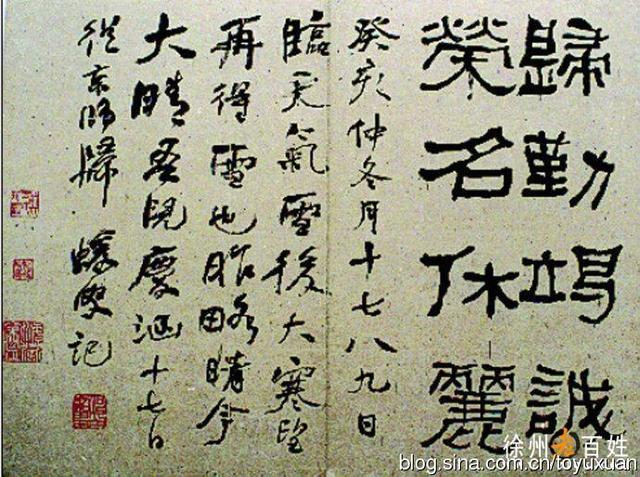 歸勤竭誠
榮名休麗
癸亥仲冬月十七八九日
臨天氣雪後大寒望
再得雪也昨略晴今
大晴吾兒慶涵十七日
從京師歸 蝯叟記
徐州 百姓
blog.sina.com.cn/toyuxuan